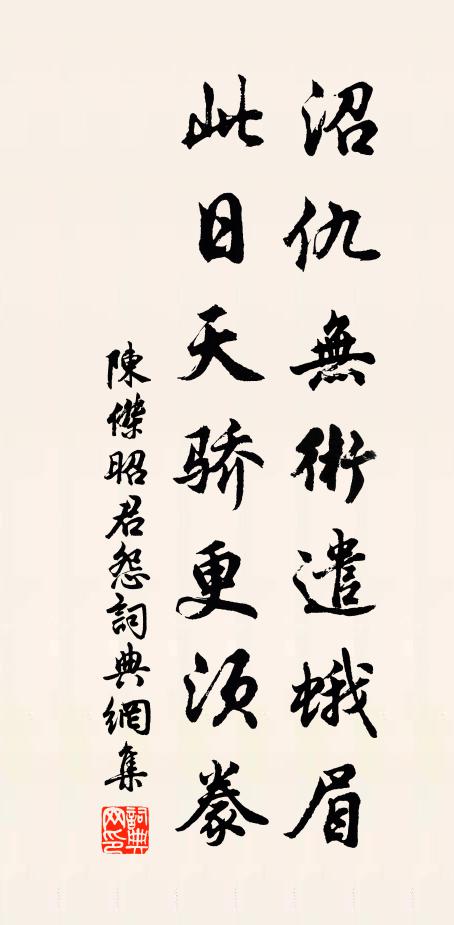 沼仇無術遣蛾眉
此日天骄更须豢
陳傑昭君怨詞典網集
詞典
网印